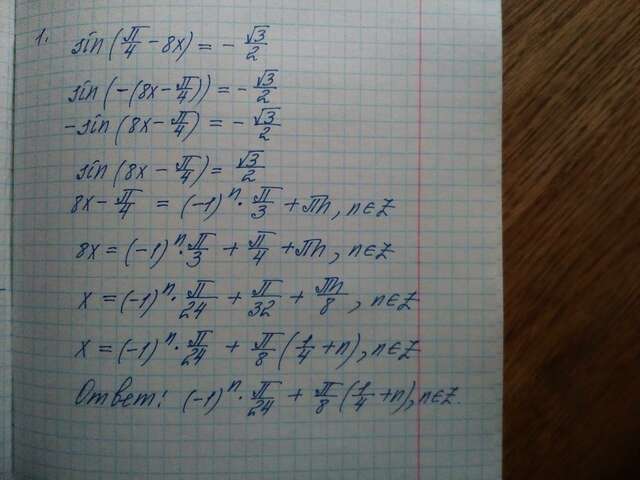 1. sin(π/4 - 8x) = - √3/2
sin(-(8x - π/4)) = - √3/2
-sin(8x - π/4) = - √3/2
sin(8x - π/4) = √3/2
8x - π/4 = (-1)ⁿ · π/3 + πn, n∈Z
8x = (-1)ⁿ · π/3 + π/4 + πn, n∈Z
x = (-1)ⁿ · π/24 + π/32 + πn/8, n∈Z
x = (-1)ⁿ · π/24 + π/8 (1/4 + n), n∈Z
Ответ: (-1)ⁿ · π/24 + π/8 (1/4 + n), n∈Z.